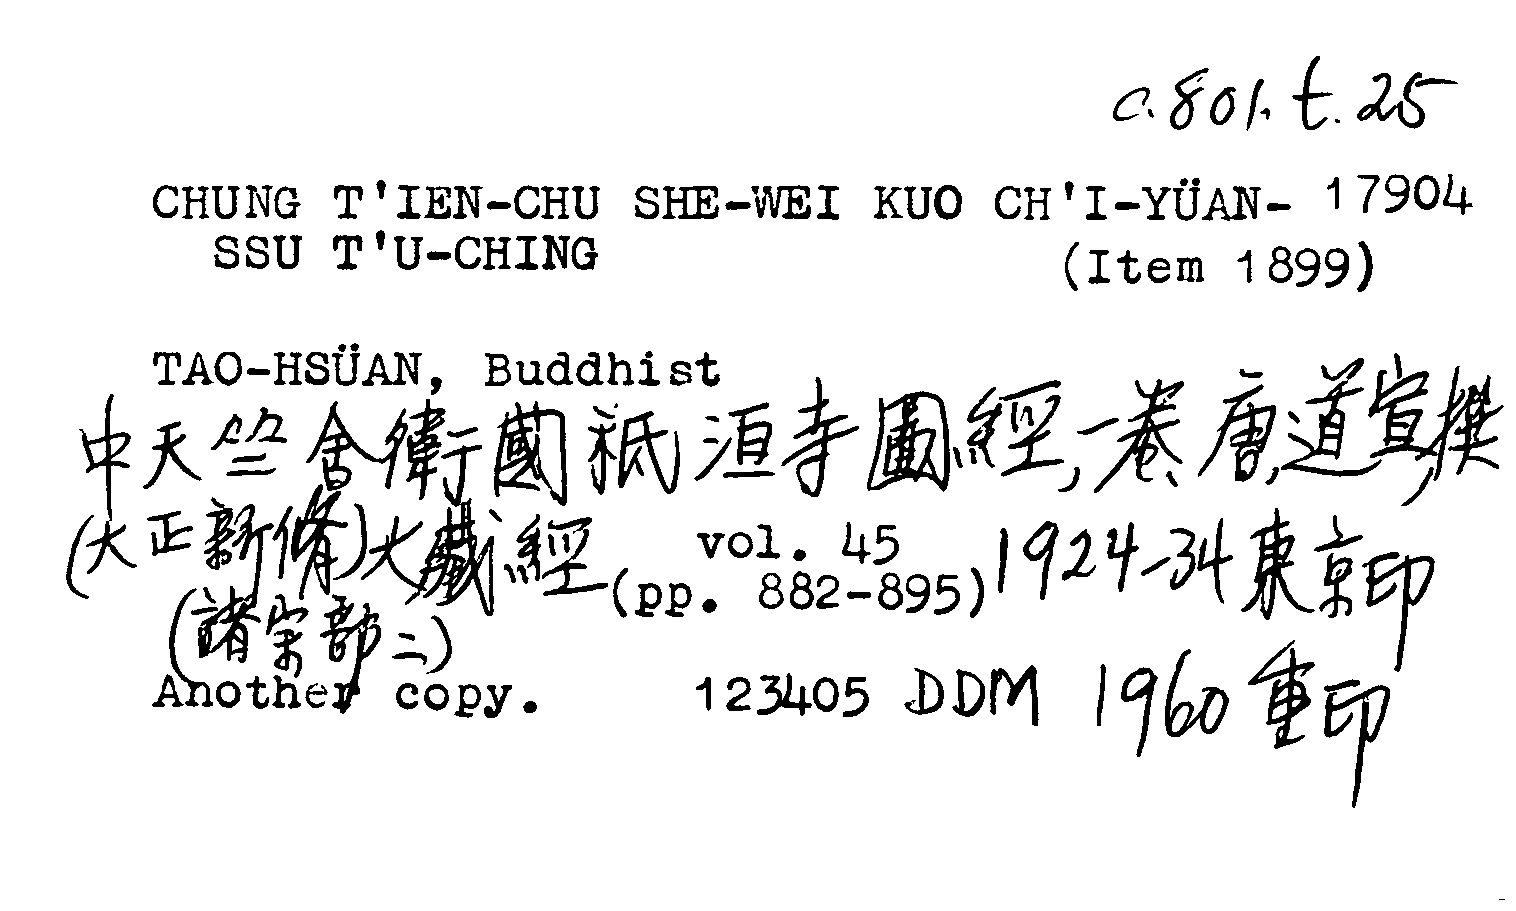 c.801.t.25
CHUNG T'IEN-CHU SHE-WEI KUO CH'I-YÜAN- 17904
SSU T'U-CHING (Item 1899)
TAO-HSÜAN, Buddhist
中天竺舍衛國祇洹寺圖經,一卷 唐,道宣,撰
(大正新脩)大藏經 vol. 45 1924-34東京印
(pp. 882-895)
(諸宗部二)
Another copy. 123405 DDM 1960重印